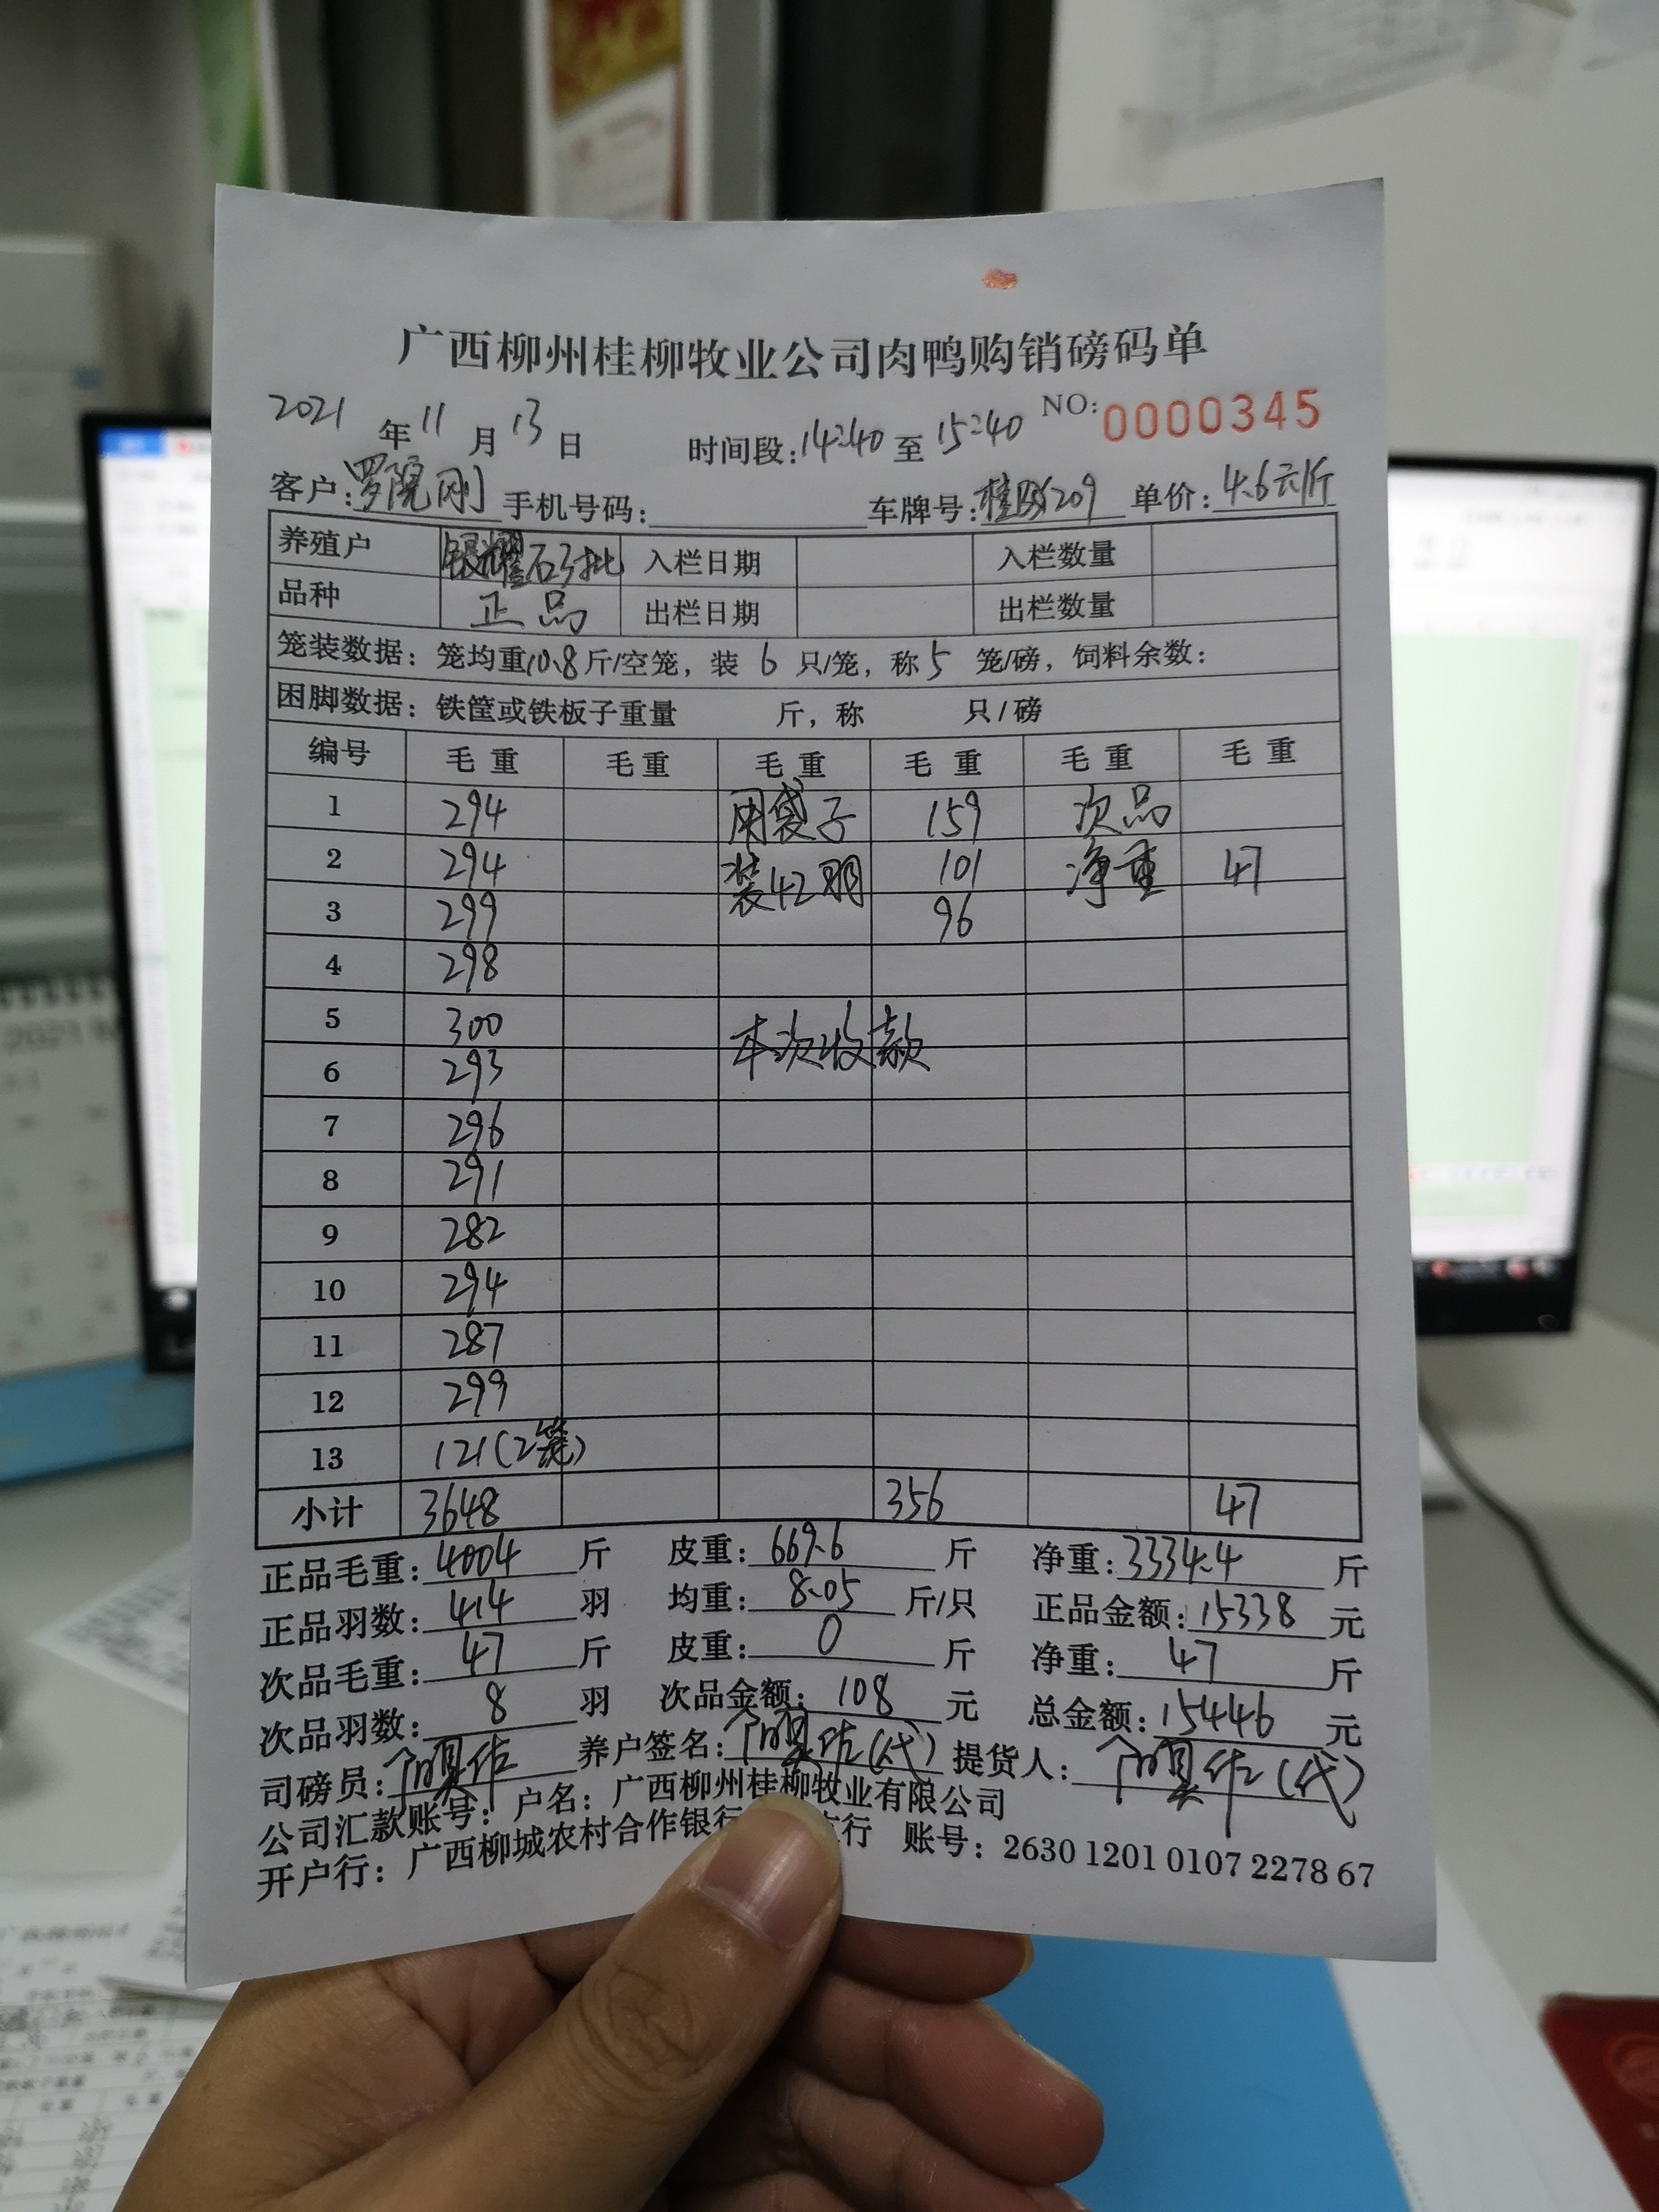 广西柳州桂柳牧业公司肉鸭购销磅码单
2021年11月13日 时间段:14:40至15:40 NO:0000345
客户:罗院刚 手机号码: 车牌号: 单价:4.6元/斤
养殖户 银耀5批 入栏日期 入栏数量
品种 正品 出栏日期 出栏数量
笼装数据:笼均重10.8斤/空笼,装6只/笼,称5笼/磅,饲料余数:
困脚数据:铁筐或铁板子重量 斤,称 只/磅
编号 毛重 毛重 毛重 毛重 毛重 毛重
1 294 用袋子 159 次品
2 294 装42羽 101 净重 47
3 299 96
4 298
5 300 本次收款
6 293
7 296
8 291
9 282
10 294
11 287
12 299
13 121(2笼)
小计 3648 356 47
正品毛重:4004斤 皮重:669.6斤 净重:3334.4斤
正品羽数:414羽 均重:8.05斤/只 正品金额:15338元
次品毛重:47斤 皮重:0斤 净重:47斤
次品羽数:8羽 次品金额:108元 总金额:15446元
司磅员: 养户签名:(代) 提货人:(代)
公司汇款账号:户名:广西柳州桂柳牧业有限公司
开户行:广西柳城农村合作银行 行 账号:2630 1201 0107 2278 67